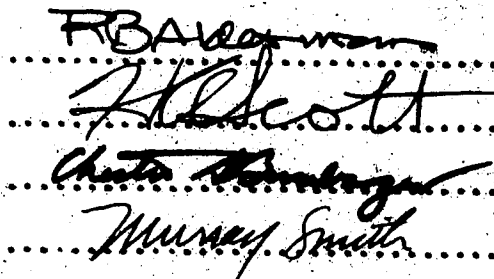 RBAckerman
HRScott
Chester
Murray Smith